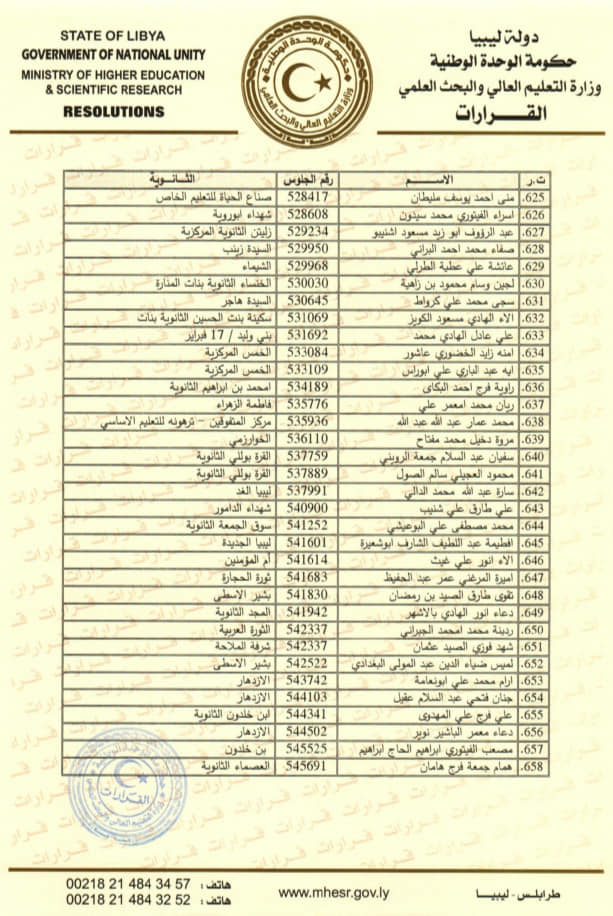 STATE OF LIBYA
GOVERNMENT OF NATIONAL UNITY
MINISTRY OF HIGHER EDUCATION
& SCIENTIFIC RESEARCH
RESOLUTIONS
دولة ليبيا
حكومة الوحدة الوطنية
وزارة التعليم العالي والبحث العلمي
القـــرارات
ت.ر الاســـم رقم الجلوس الثـــانوية
625. منى احمد يوسف مليطان 528417 صناع الحياة للتعليم الخاص
626. اسراء الفيتوري محمد سيدون 528608 شهداء ابوروية
627. عبد الرؤوف ابو زيد مسعود اشنيبو 529234 زليتن الثانوية المركزية
628. صفاء محمد احمد البراني 529950 السيدة زينب
629. عائشة علي عطية الطرلي 529968 الشيماء
630. لجين وسام محمود بن زاهية 530030 الخنساء الثانوية بنات المنارة
631. سجى محمد علي كرواط 530645 السيدة هاجر
632. الاء الهادي مسعود الكويز 531069 سكينة بنت الحسين الثانوية بنات
633. علي عادل الهادي محمد 531692 بني وليد / 17 فبراير
634. امنه زايد الخضوري عاشور 533084 الخمس المركزية
635. ايه عبد الباري علي ابوراس 533109 الخمس المركزية
636. راوية فرج احمد البكاى 534189 امحمد بن ابراهيم الثانوية
637. ريان محمد امعمر علي 535776 فاطمة الزهراء
638. محمد عمار عبد الله عبد الله 535936 مركز المتفوقين - ترهونه للتعليم الاساسي
639. مروة دخيل محمد مفتاح 536110 الخوارزمي
640. سفيان عبد السلام جمعة الرويني 537759 القرة بوللي الثانوية
641. محمود العجيلي سالم الصول 537889 القرة بوللي الثانوية
642. سارة عبد الله محمد الدالي 537991 ليبيا الغد
643. علي طارق علي شنيب 540900 شهداء الدامور
644. محمد مصطفى علي البوعيشي 541252 سوق الجمعة الثانوية
645. افطيمة عبد اللطيف الشارف ابوشعيرة 541601 ليبيا الجديدة
646. الاء انور علي غيث 541614 أم المؤمنين
647. اميرة المرغني عمر عبد الحفيظ 541683 ثورة الحجارة
648. تقوى طارق الصيد بن رمضان 541830 بشير الاسطى
649. دعاء انور الهادي بالاشهر 541942 المجد الثانوية
650. ردينة محمد امحمد الجبراني 542337 الثورة العربية
651. شهد فوزي الصيد عثمان 542337 شرفة الملاحة
652. لميس ضياء الدين عبد المولى البغدادي 542522 بشير الاسطى
653. ارام محمد علي ابونعامة 543742 الازدهار
654. جنان فتحي عبد السلام عقيل 544103 الازدهار
655. علي فرج علي المهدوى 544341 ابن خلدون الثانوية
656. دعاء معمر الباشير نوير 544502 الازدهار
657. مصعب الفيتوري ابراهيم الحاج ابراهيم 545525 بن خلدون
658. همام جمعة فرج هامان 545691 العصماء الثانوية
القـرارات
00218 21 484 34 57 هاتف :
00218 21 484 32 52 هاتف :
www.mhesr.gov.ly
طرابلس - ليبيـــا